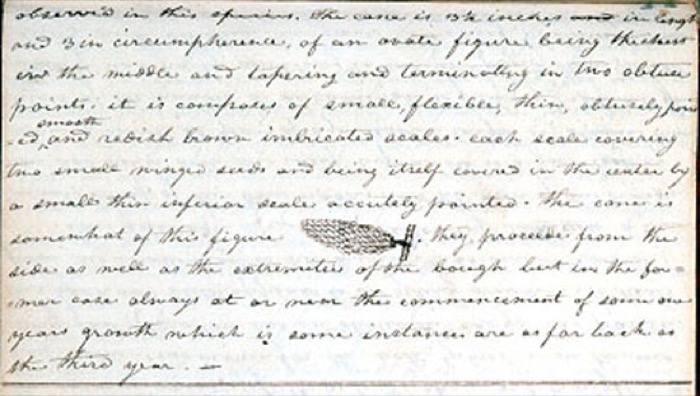 observed in this species. the cone is 3½ inches and in length
and 3 in circumpherence, of an ovate figure being thickest
in the middle and tapering and terminating in two obtuse
points. it is composes of small, flexible, thin, obtusely poin
smooth
-ed, and redish brown imbricated scales. each scale covering
two small winged seeds and being itself covered in the center by
a small thin inferior scale accutely pointed. the cone is
somewhat of this figure . they proceede from the
side as well as the extremities of the bough but in the for=
=mer case always at or near the commencement of some one
years growth which is some instances are as far back as
the third year. —